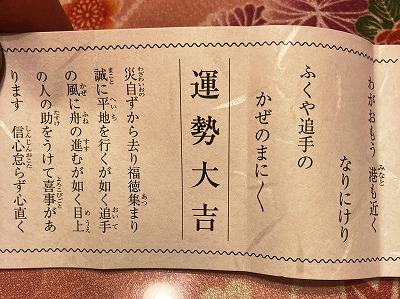 わがおもう 港も近く
なりにけり
ふくや追手の
かぜのまに〱
運勢大吉
災自ずから去り福徳集まり
誠に平地を行くが如く追手
の風に舟の進むが如く目上
の人の助をうけて喜事があ
ります 信心怠らず心直く